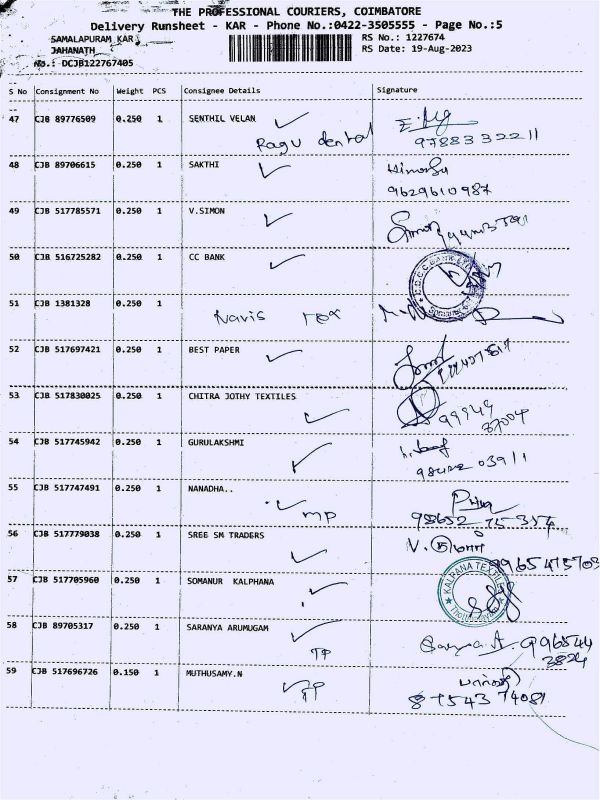 THE PROFESSIONAL COURIERS, COIMBATORE
Delivery Runsheet - KAR - Phone No.:0422-3505555 - Page No.:5
SAMALAPURAM KAR
JAHANATH
No.: DCJB122767405
RS No.: 1227674
RS Date: 19-Aug-2023
S No Consignment No Weight PCS Consignee Details Signature
47 CJB 89776509 0.250 1 SENTHIL VELAN
Ragu dental
9788332211
48 CJB 89706615 0.250 1 SAKTHI
9629610987
49 CJB 517785571 0.250 1 V.SIMON
50 CJB 516725282 0.250 1 CC BANK
51 CJB 1381328 0.250 1
Navis Tex
52 CJB 517697421 0.250 1 BEST PAPER
53 CJB 517830025 0.250 1 CHITRA JOTHY TEXTILES
99949
87004
54 CJB 517745942 0.250 1 GURULAKSHMI
55 CJB 517747491 0.250 1 NANADHA..
mp
Priya
98652 75-357
56 CJB 517779038 0.250 1 SREE SM TRADERS
57 CJB 517705960 0.250 1 SOMANUR KALPHANA
KALPANA TEXTILE
58 CJB 89705317 0.250 1 SARANYA ARUMUGAM
TP
Saranya A. 996544
3824
59 CJB 517696726 0.150 1 MUTHUSAMY.N
TP
87543 74081